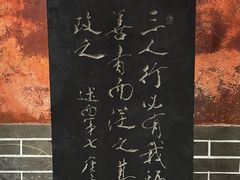 三人行必有我
善者而从之其
改之
述而第七